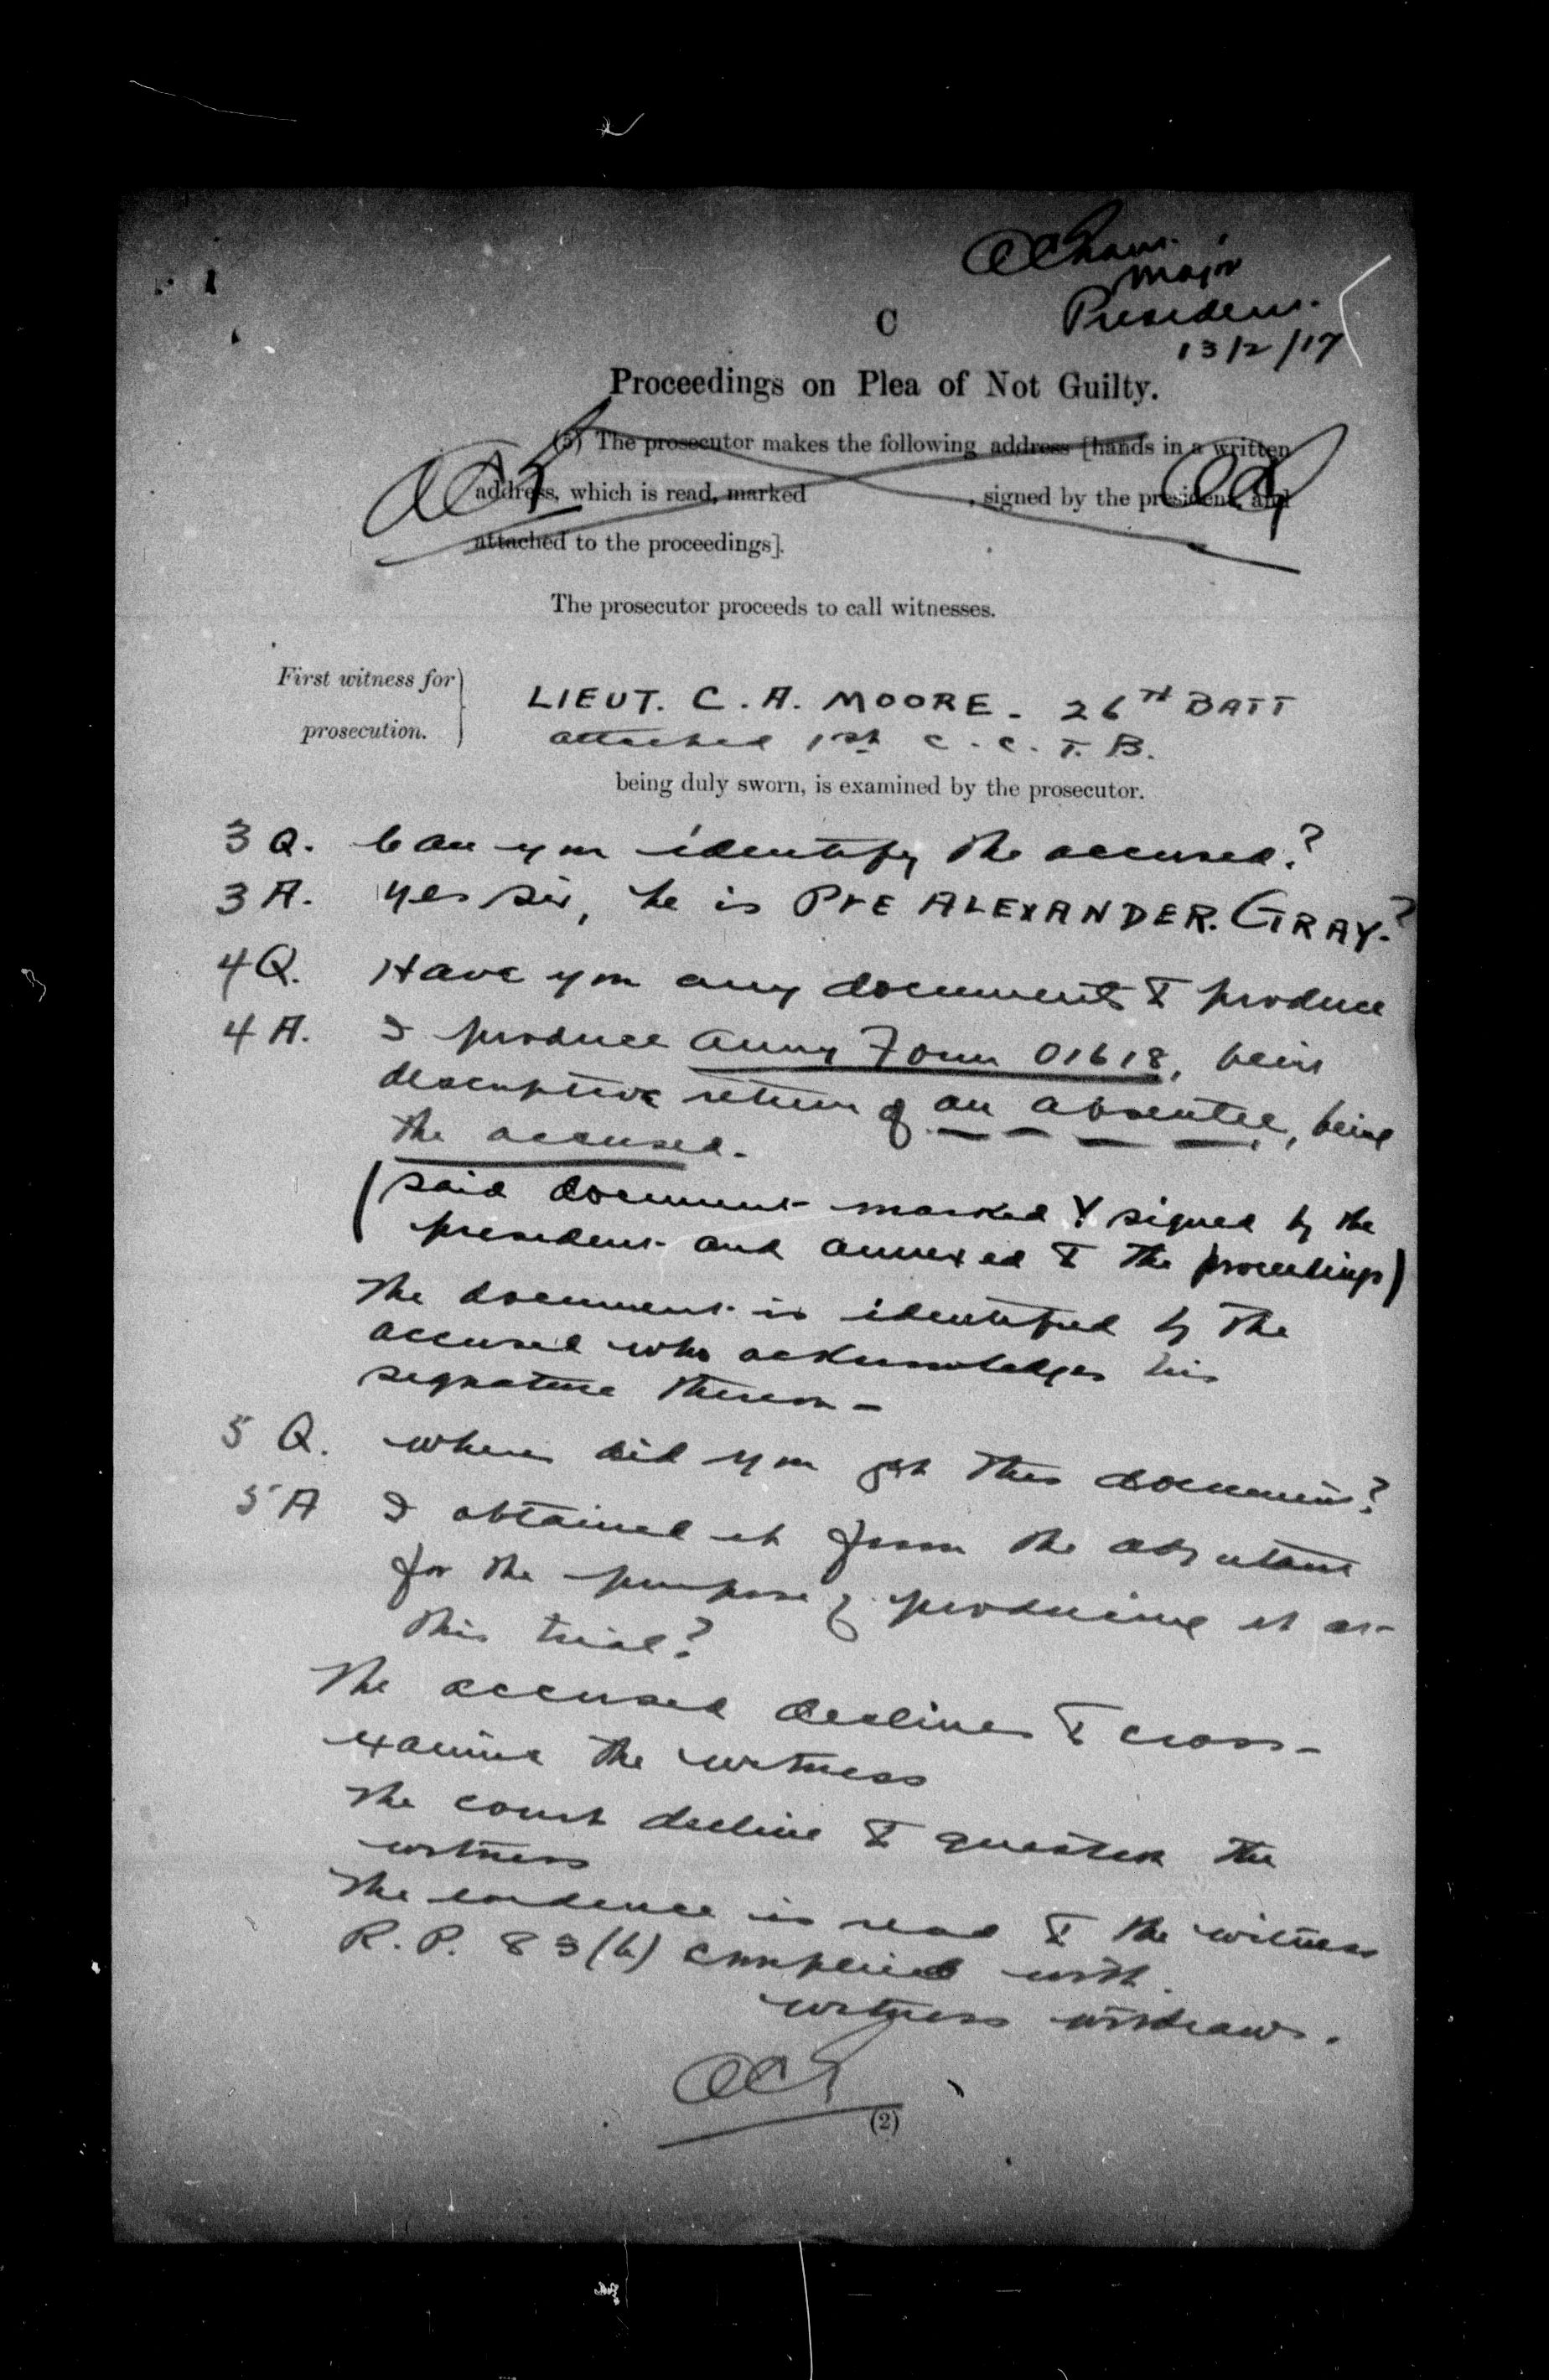 Major
President.
13/2/17
C
Proceedings on Plea of Not Guilty.
(5) The prosecutor makes the following address [hands in a written
address, which is read, marked , signed by the president, and
attached to the proceedings].
The prosecutor proceeds to call witnesses.
First witness for
prosecution.
LIEUT. C. A. MOORE - 26TH BATT
attached 1st C. C. T. B.
being duly sworn, is examined by the prosecutor.
3 Q. Can you identify the accused?
3 A. Yes sir, he is PTE ALEXANDER. GRAY-?
4 Q. Have you any documents to produce
4 A. I produce Army Form O1618, being
descriptive return of an absentee, being
the accused.
(said document marked Y signed by the
president and annexed to the proceedings)
The document is identified by the
accused who acknowledges his
signature thereon -
5 Q. where did you get this document?
5 A I obtained it from the adjutant
for the purpose of producing it at
this trial?
The accused declines to cross-
examine the witness
The court decline to question the
witness
The evidence is read to the witness
R.P. 83 (b) complied with.
witness withdraws.
(2)